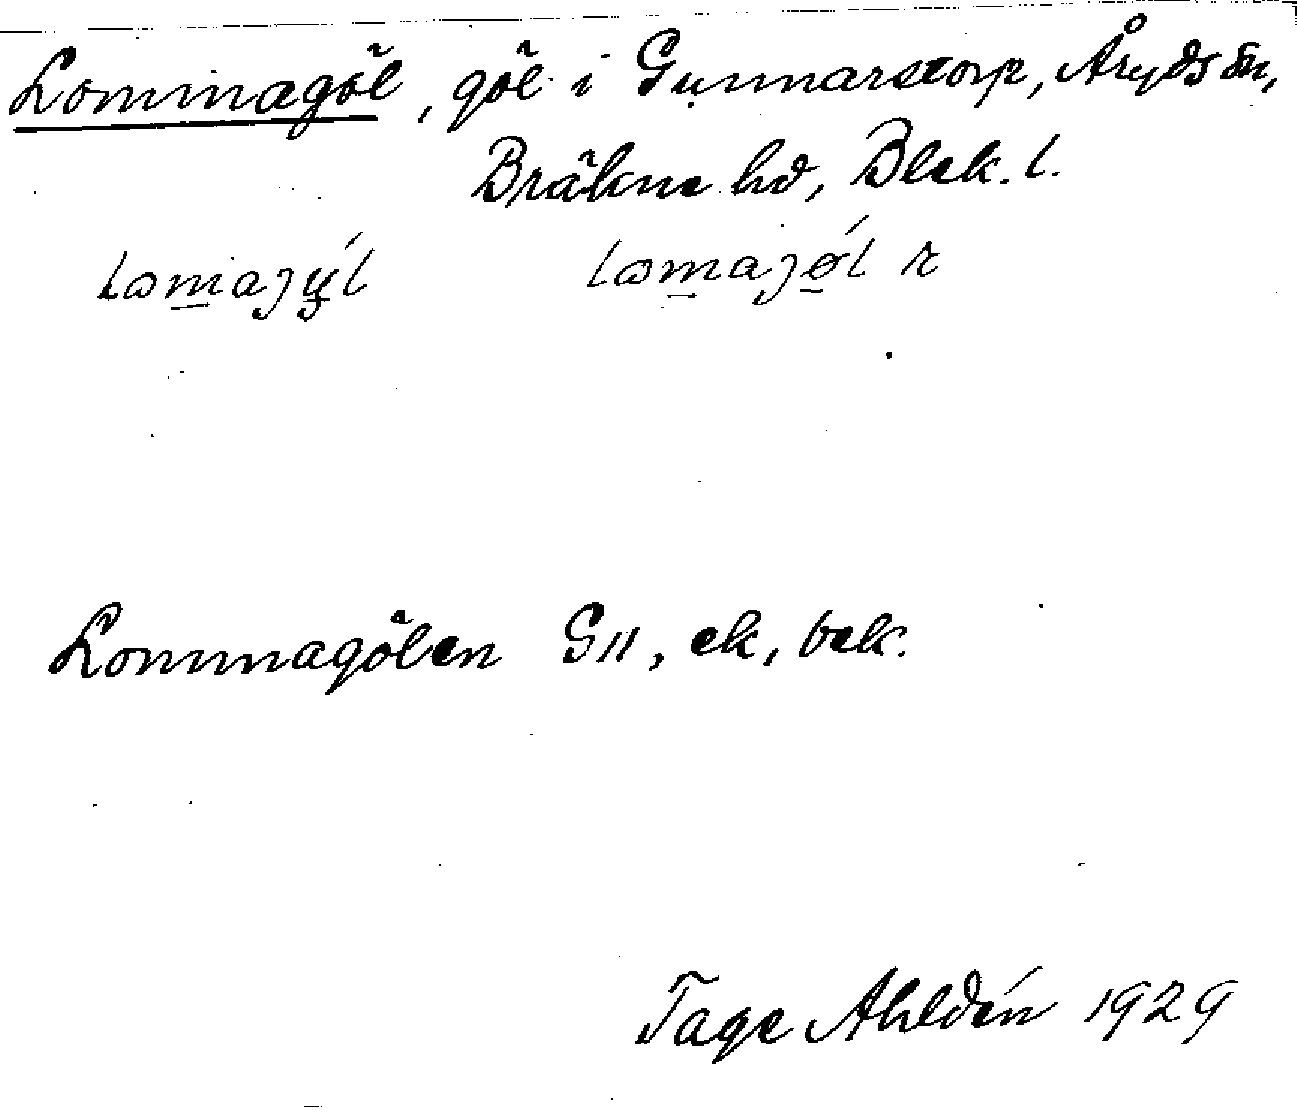 Lommagöl, göl i Gunnarstorp, Åryds sn,
Bräkne hd, Blek. l.
lomajý̨l lomajǿl r
Lommagölen Gll, ek, bek.
Tage Ahldén 1929